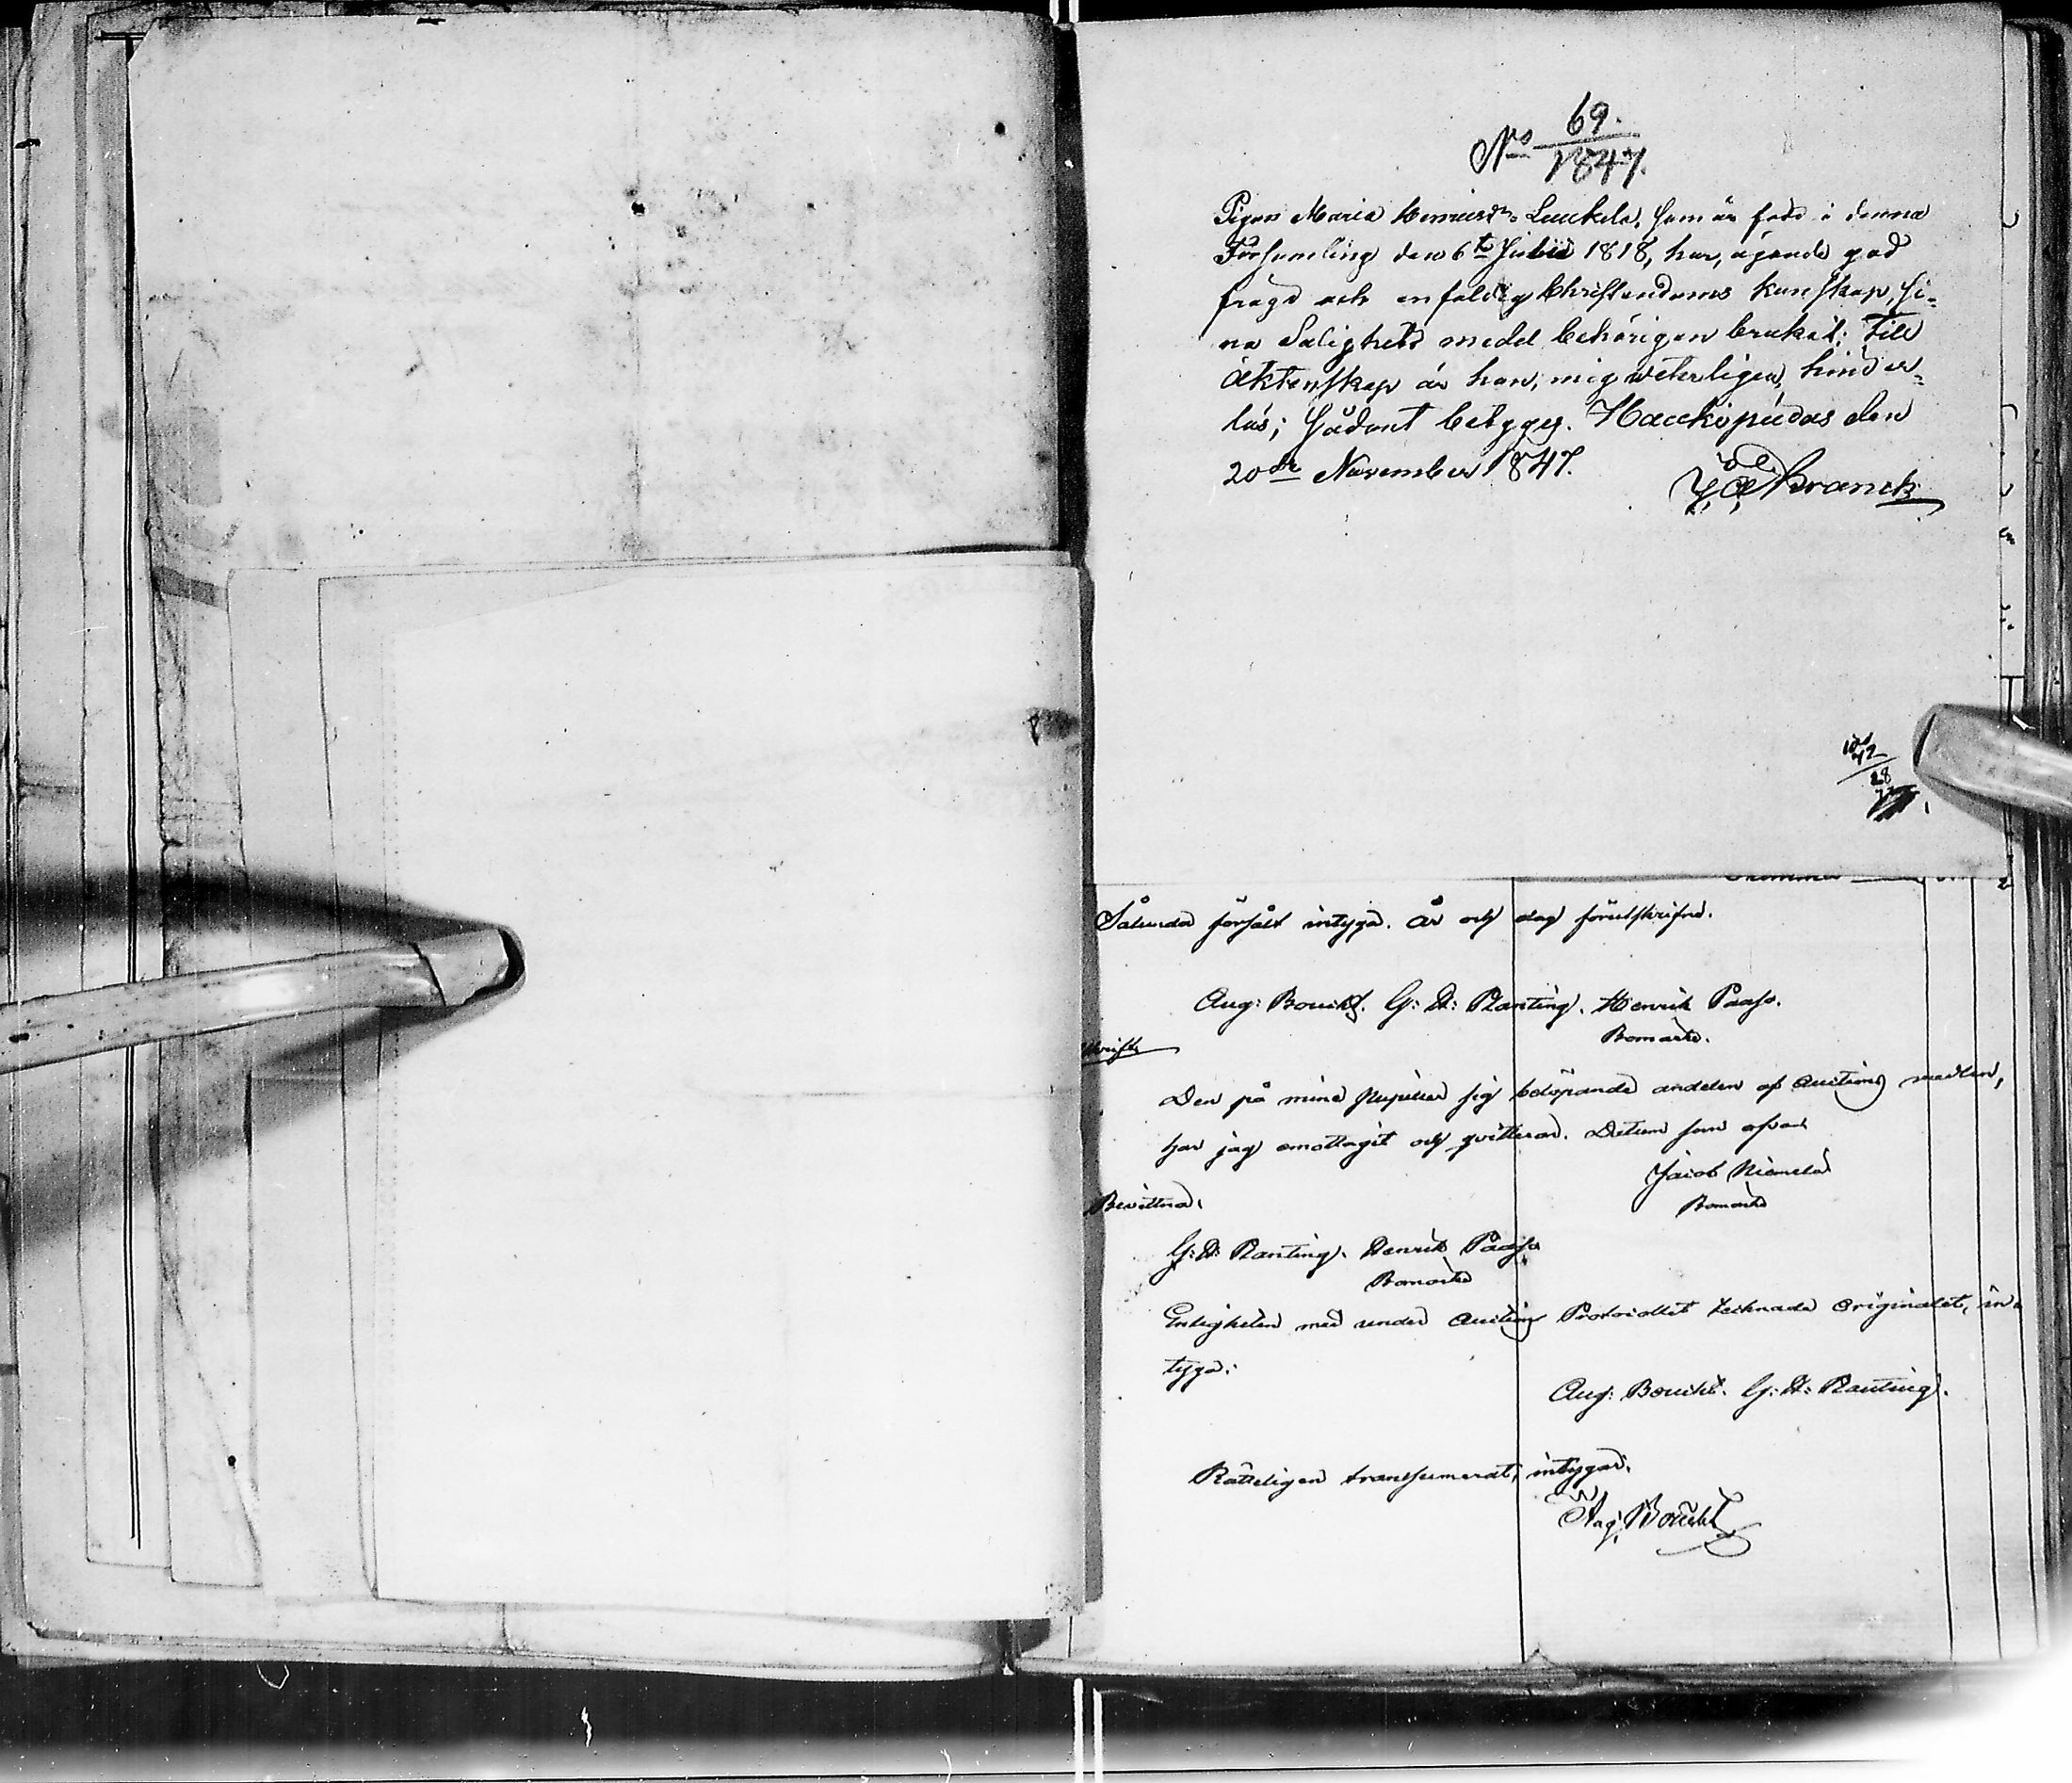 No 69.
1847.
Pigan Maria Henricsdr Luukela, som är född i denna
Församling den 6te Julii 1818, har, ägande god
fregd och enfaldig Christendoms kunskap, si-
na Salighets medel behörigen brukat; Till
äktenskap är hon, mig veterligen, hinder-
lös; Sådant betyges. Haukipudas den
20de November 1847.
Franck
42
28
Sålunda förfålt intyga. År och dag förutskrifne.
Aug: Boucht. G: H: Planting. Henrik Paaso.
Bomärke.
skrifts
Den på mina pupiller sig belöpande andelen af Auctions medlen,
har jag emottagit och qvitterar. Datum som ofvan
Jacob Niemelä
Bomärke
Bevittna:
G: H: Planting. Henrik Paaso
Bomärke
Enligheten med under Auctions Protocollet tecknade Originalet, in-
tyga:
Aug: Boucht. G: H: Planting.
Rätteligen transsumerat, intygar.
Aug. Boucht